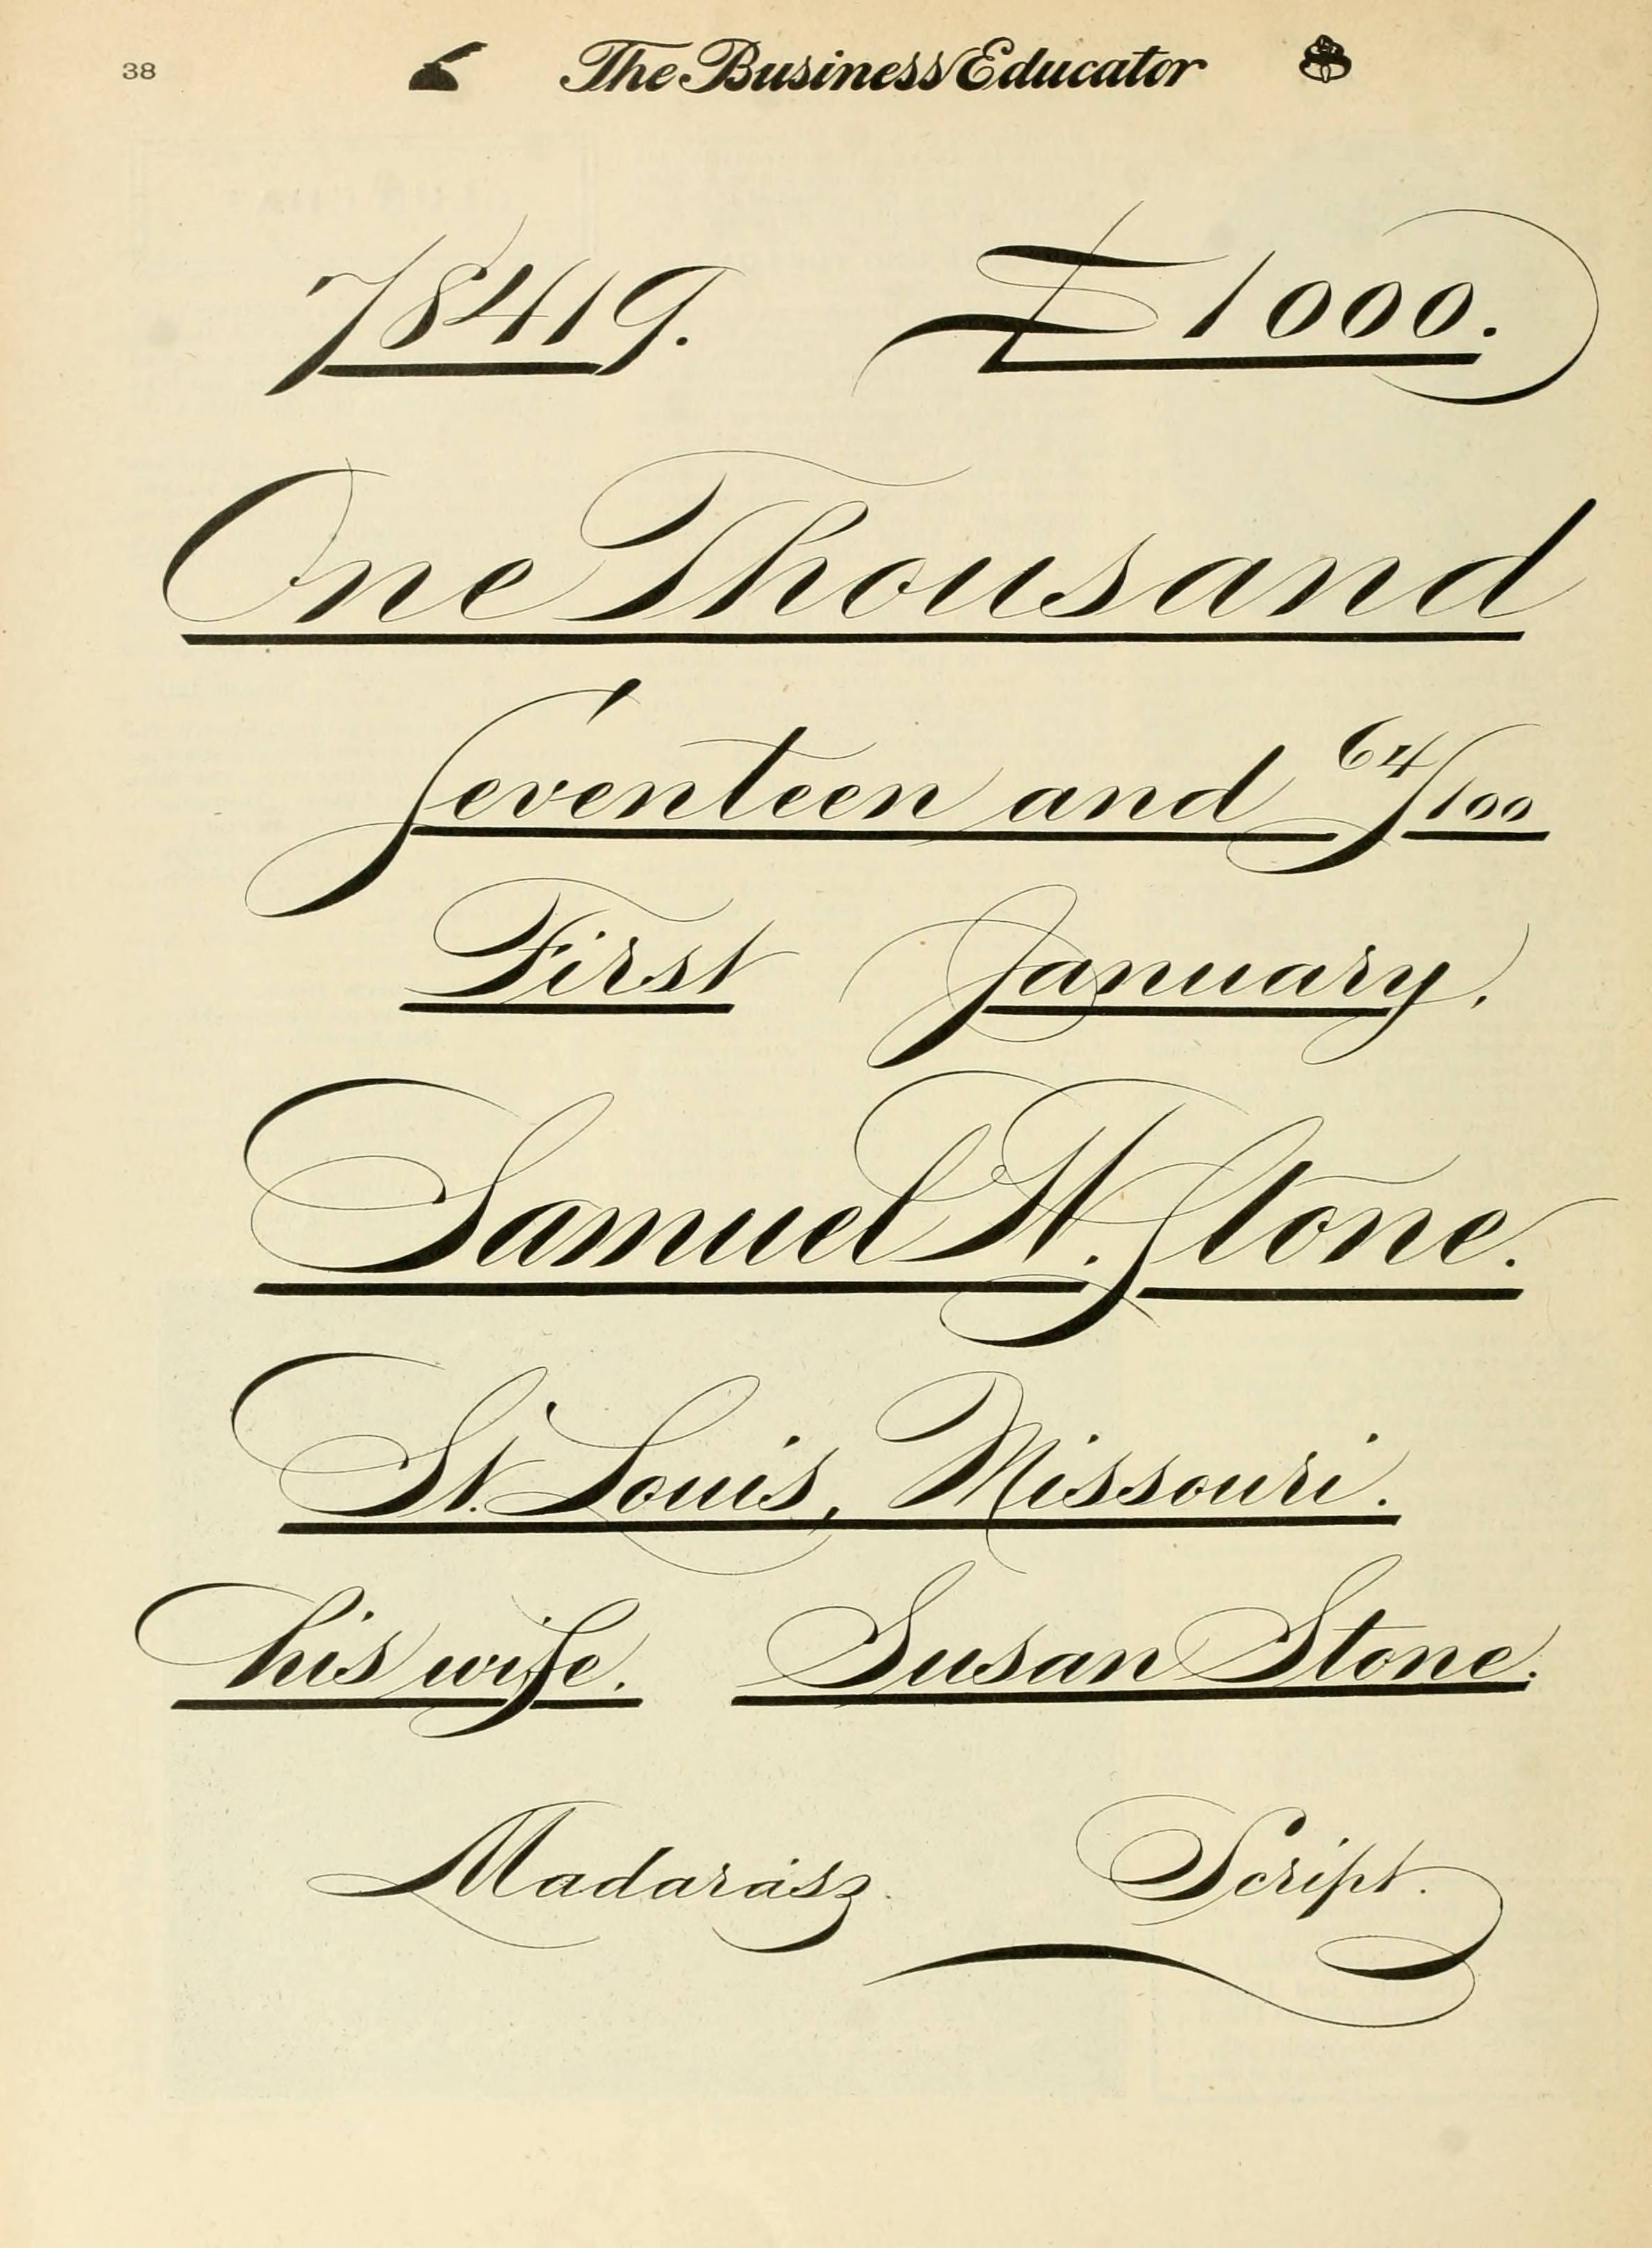 38 The Business Educator
78419. £1000.
One Thousand
Seventeen and 64/100
First January.
Samuel H. Stone.
St. Louis, Missouri.
his wife. Susan Stone.
Madarász Script.